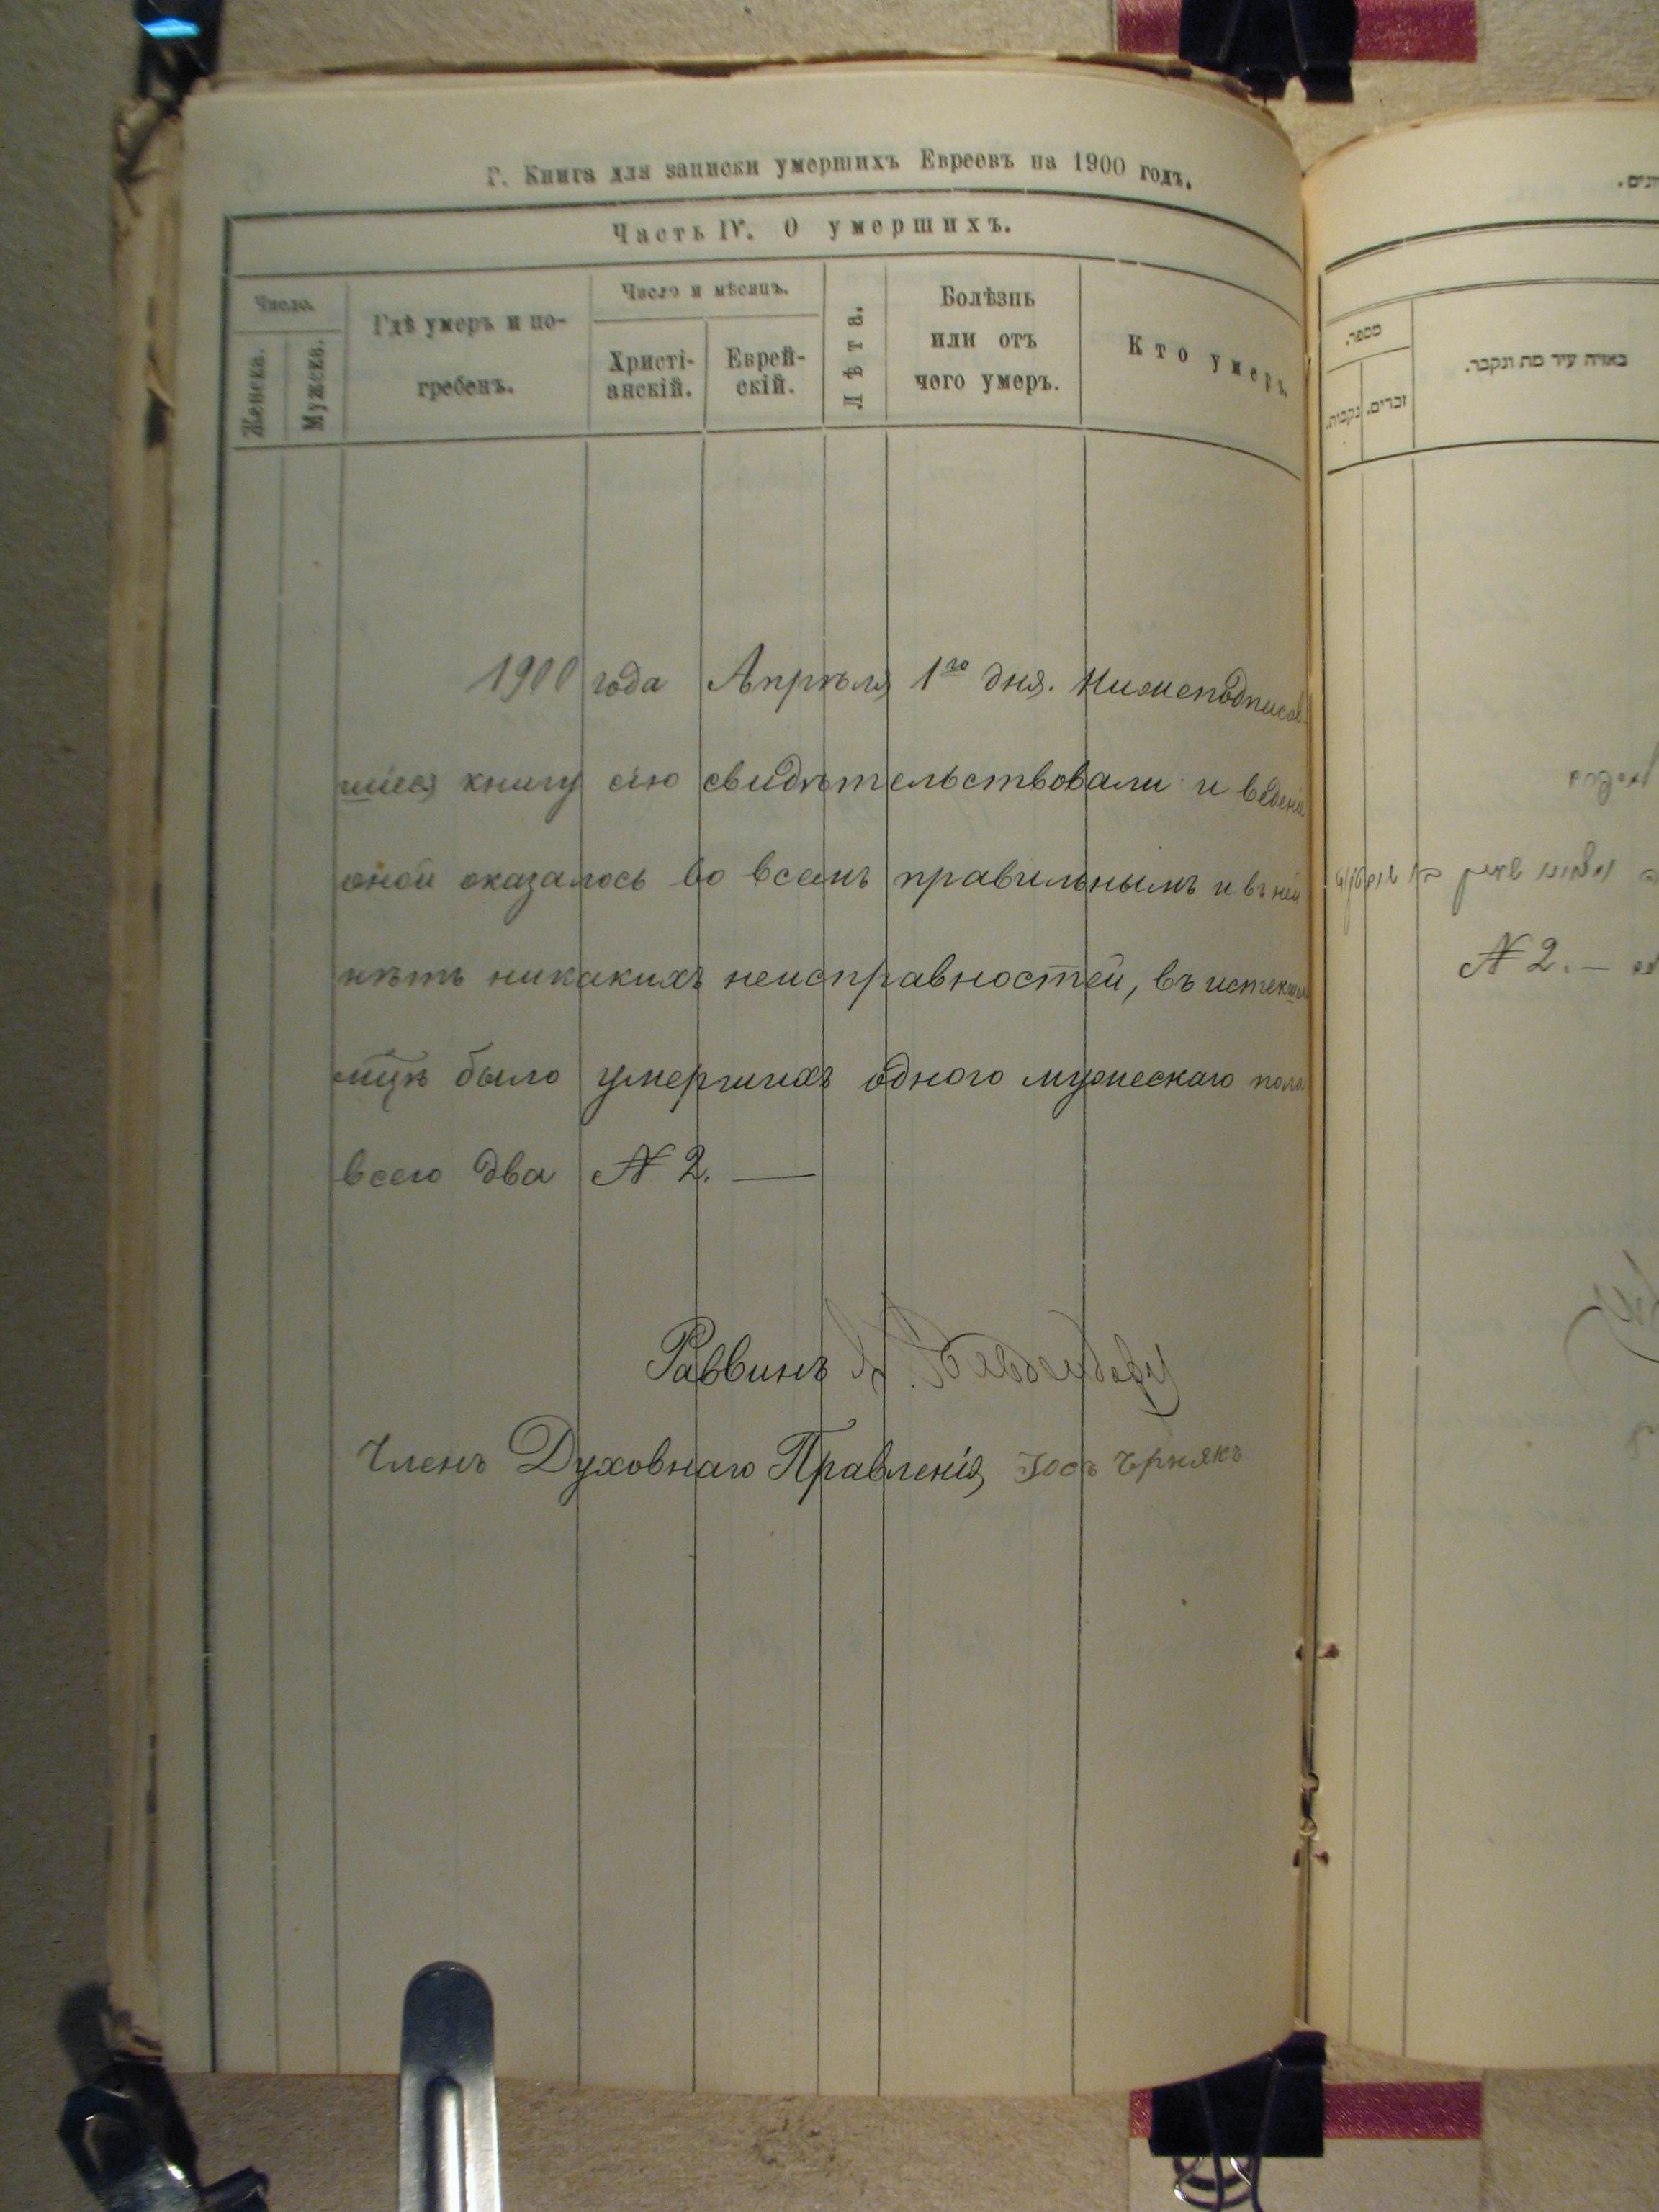 Г. Книга для записки умершихъ Евреевъ на 1900 годъ.
Часть IV. О умершихъ.
Число.
Женска.
Мужска.
Гдѣ умеръ и по-
гребенъ.
Число и мѣсяцъ.
Христі-
анскій.
Еврей-
скій.
Лѣта.
Болѣзнь
или отъ
чего умеръ.
Кто умеръ.
1900 года Апрѣля 1го дня. Нижеподписав
шіеся книгу сію свидѣтельствовали и веденіе
оной оказалось во всемъ правильнымъ и въ ней
нѣтъ никакихъ неисправностей, въ истекшемъ
мцѣ было умершихъ одного мужескаго пола
всего два N 2. —
Раввинъ
Членъ Духовнаго Правленія Іосъ Чрнякъ
מספר.
נקבות.
זכרים.
באיזה עיר מת ונקבר.
N 2. —